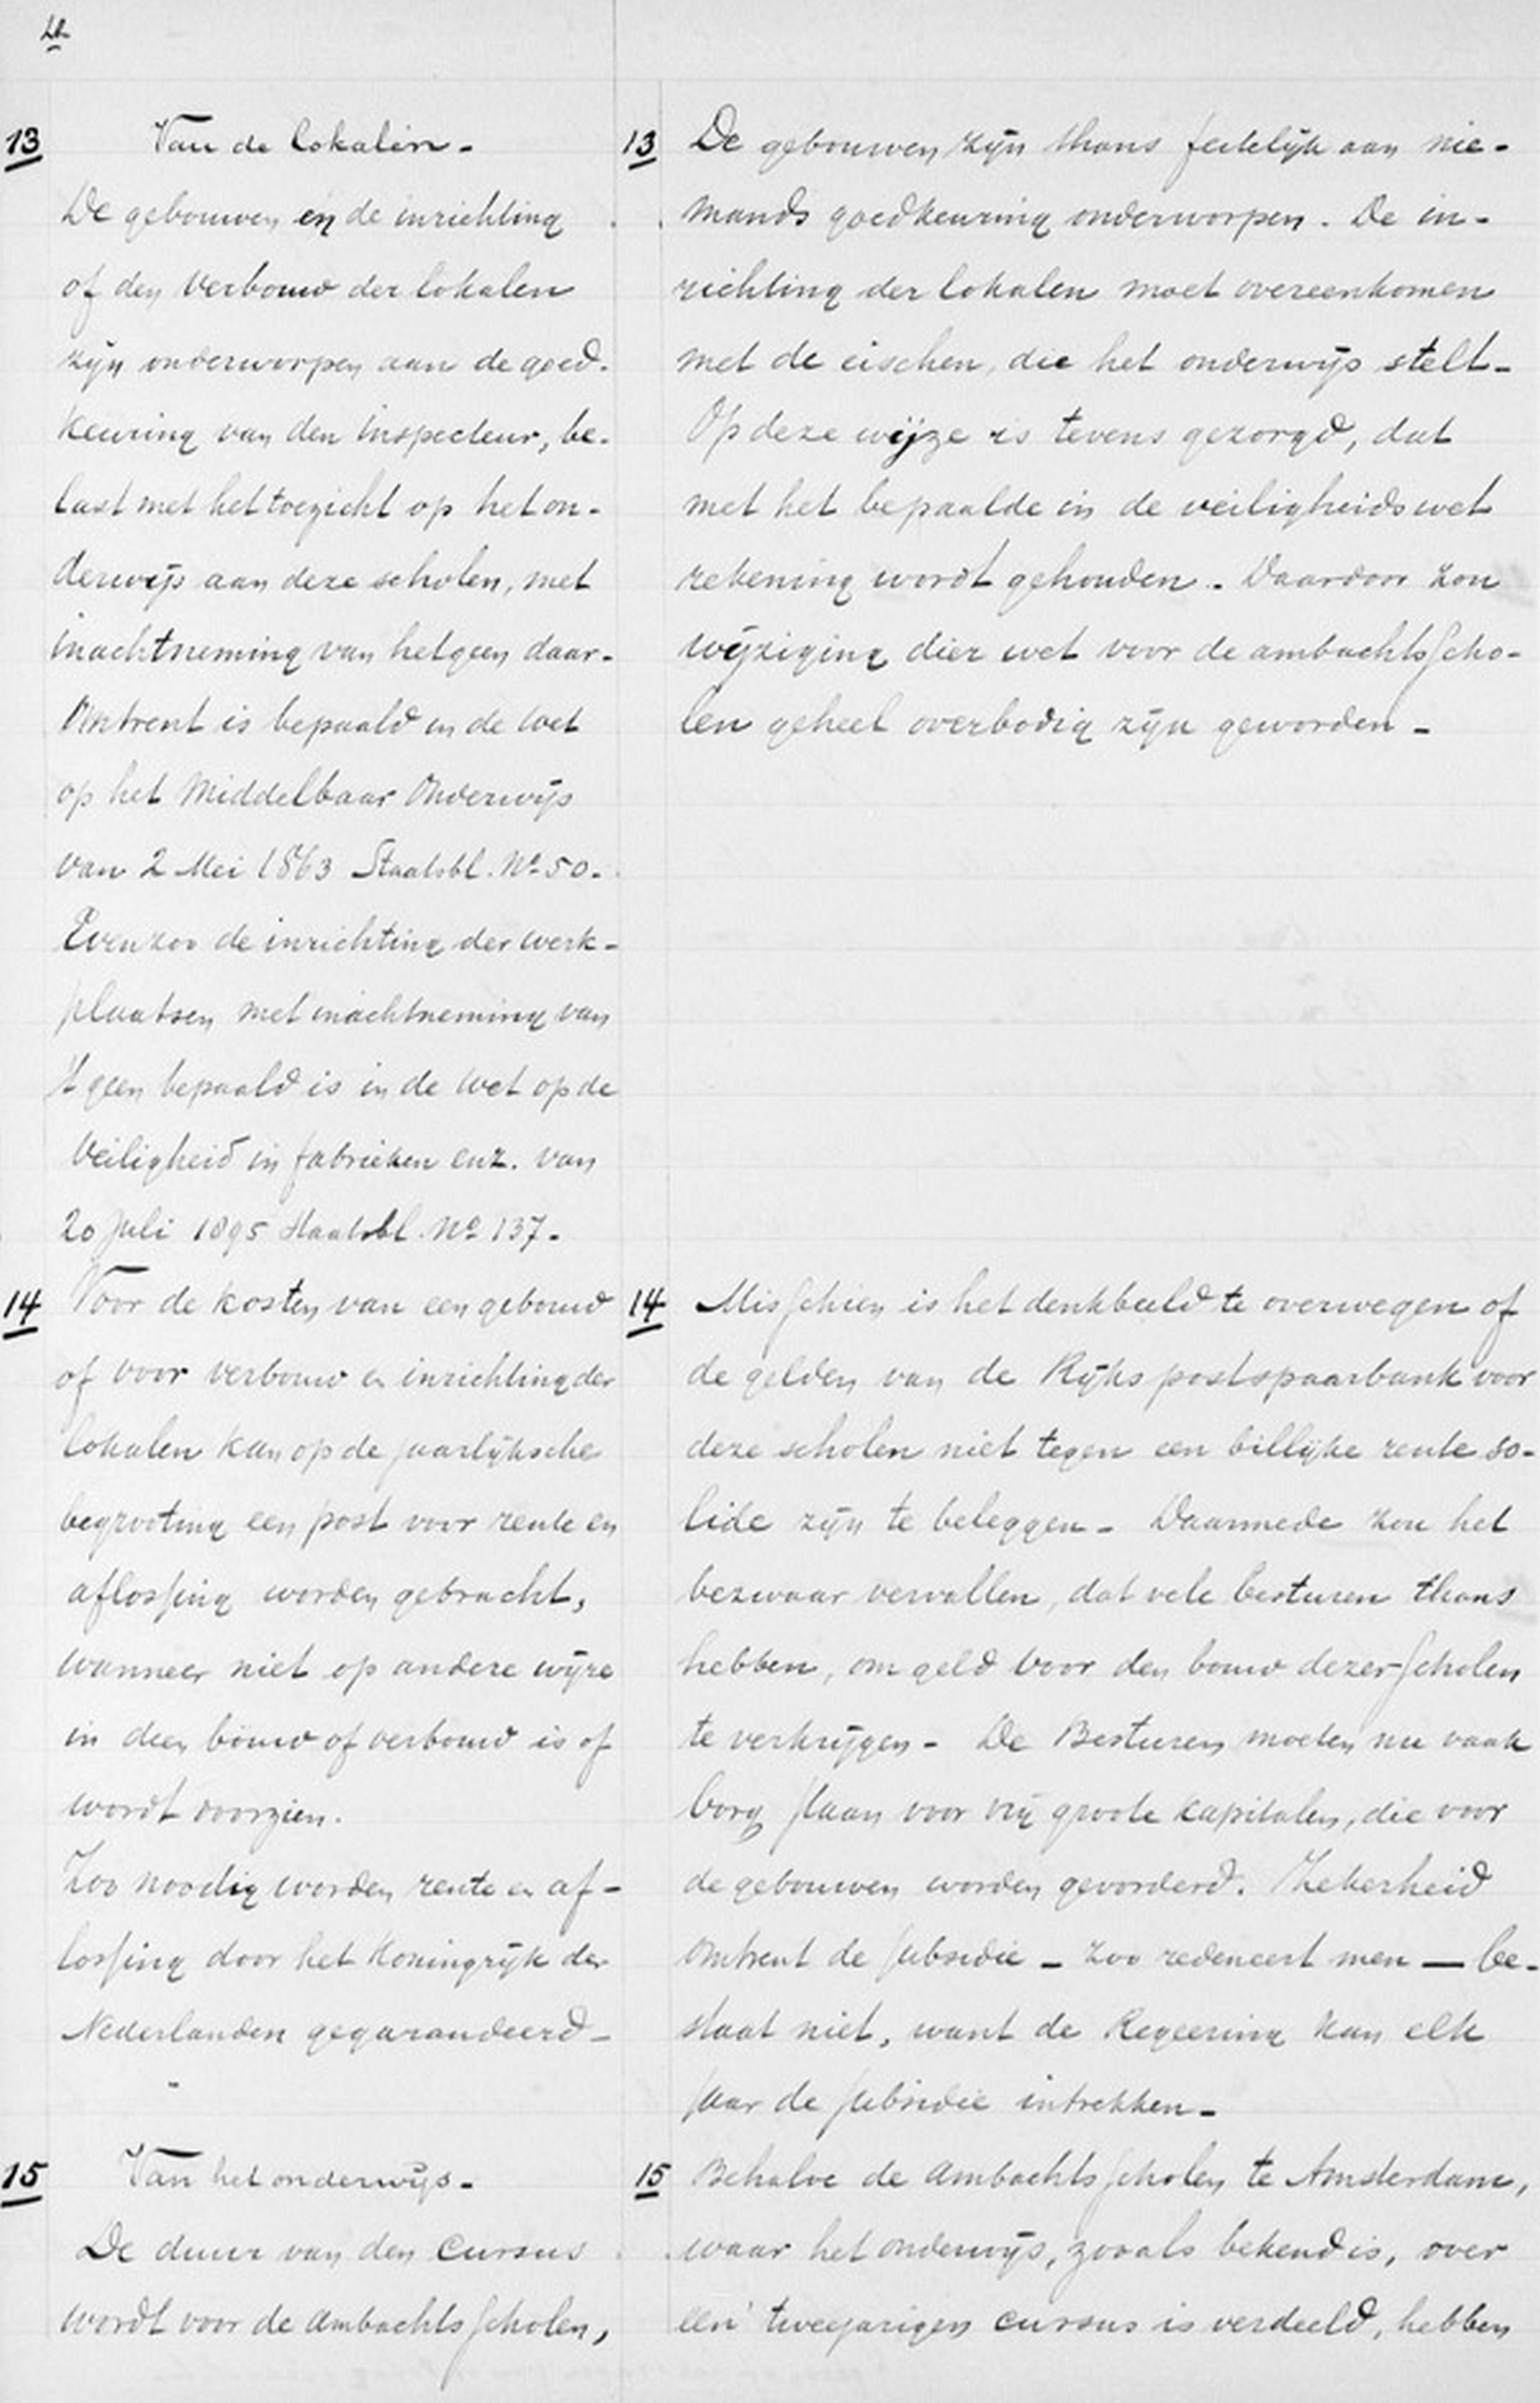 13 Van de lokalen.
De gebouwen en de inrichting
of den verbouw der lokalen
zijn onderworpen aan de goed-
keuring van den inspecteur, be-
last met het toezicht op het on-
derwijs aan deze scholen, met
inachtneming van hetgeen daar-
omtrent is bepaald in de wet
op het Middelbaar Onderwijs
van 2 Mei 1863 Staatsbl. No 50.
Evenzoo de inrichting der werk-
plaatsen met inachtneming van
't geen bepaald is in de wet op de
Veiligheid in fabrieken enz. van
20 Juli 1895 Staatsbl. No 137.
14 Voor de kosten van een gebouw
of voor verbouw en inrichting der
lokalen kan op de jaarlijksche
begrooting een post voor rente en
aflossing worden gebracht,
wanneer niet op andere wijze
in den bouw of verbouw is of
wordt voorzien.
Zoo noodig worden rente en af-
lossing door het Koningrijk der
Nederlanden gegarandeerd-
15 Van het onderwijs.
De duur van den cursus
wordt voor de Ambachtsscholen,
13 De gebouwen zijn thans feitelijk aan nie-
mands goedkeuring onderworpen. De in-
richting der lokalen moet overeenkomen
met de eischen, die het onderwijs stelt-
Op deze wijze is tevens gezorgd, dat
met het bepaalde in de veiligheidswet
rekening wordt gehouden. Daardoor zou
wijziging dier wet voor de ambachtsscho-
len geheel overbodig zijn geworden-
14 Misschien is het denkbeeld te overwegen of
de gelden van de Rijks postspaarbank voor
deze scholen niet tegen een billijke rente so-
lide zijn te beleggen- Daarmede zou het
bezwaar vervallen, dat vele besturen thans
hebben, om geld voor den bouw dezer scholen
te verkrijgen- De Besturen moeten nu vaak
borg staan voor vrij groote kapitalen, die voor
de gebouwen worden gevorderd. Zekerheid
omtrent de subsidie - zoo redeneert men - be-
staat niet, want de Regeering kan elk
jaar de subsidie intrekken-
15 Behalve de Ambachtsscholen te Amsterdam,
waar het onderwijs, zooals bekend is, over
een tweejarigen cursus is verdeeld, hebben